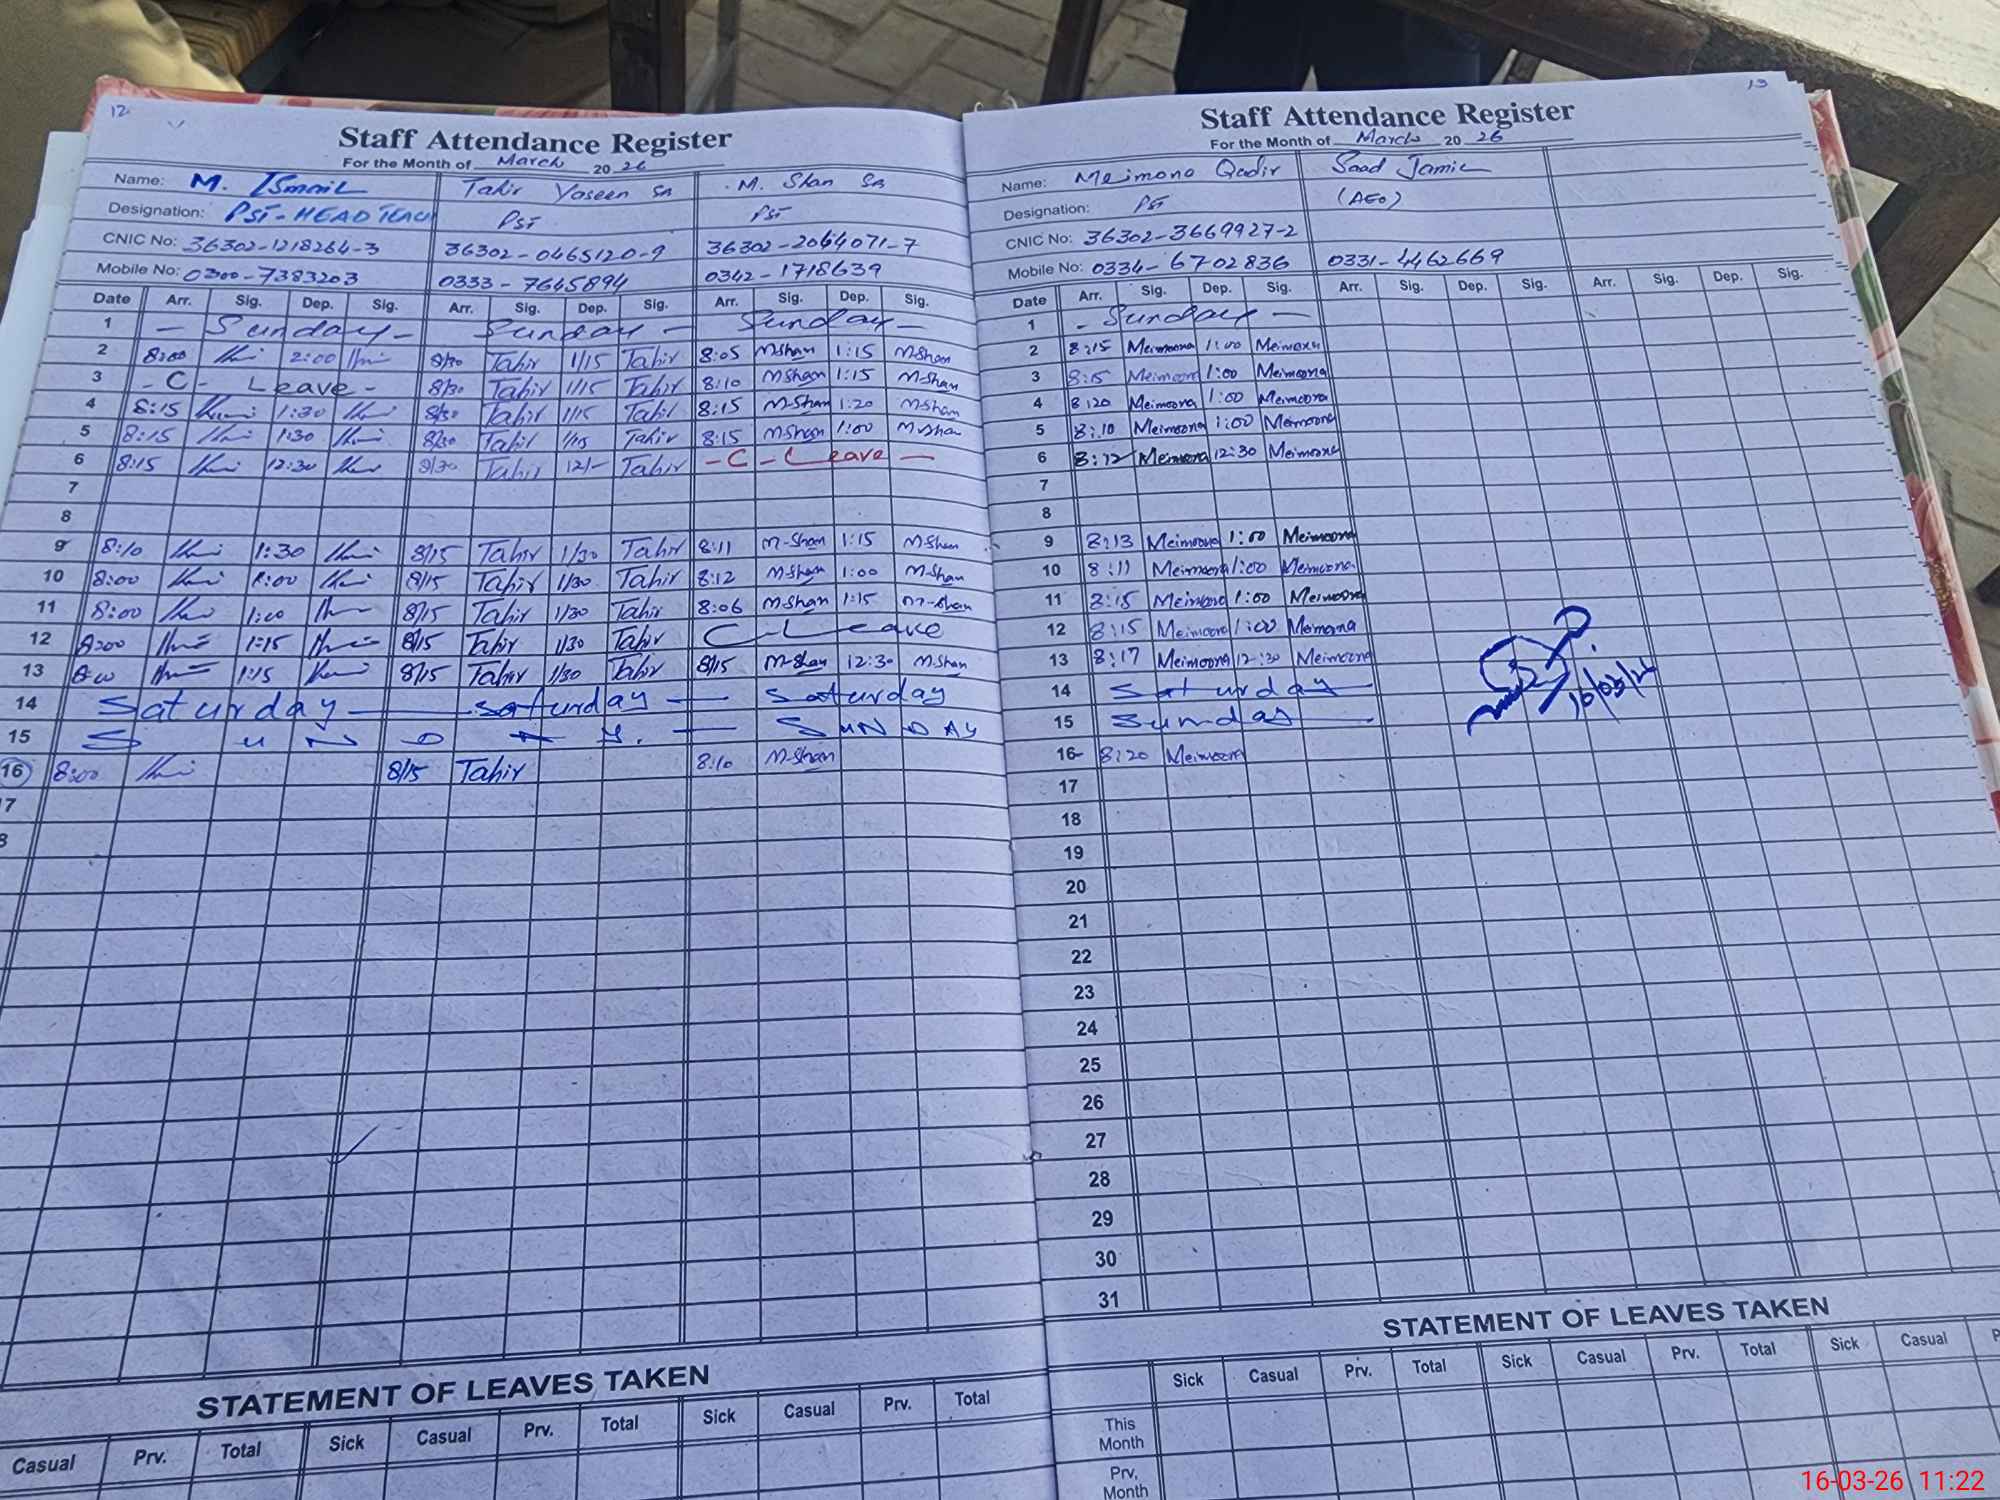 12
Staff Attendance Register
For the Month of March 20 26
Name: M. ISmail Tahir Yaseen SB M. Shan SB
Designation: PST-HEAD TEACH PST PST
CNIC No: 36302-1218264-3 36302-0465120-9 36302-2064071-7
Mobile No: 0300-7383203 0333-7645894 0342-1718639
Date Arr. Sig. Dep. Sig. Arr. Sig. Dep. Sig. Arr. Sig. Dep. Sig.
1 - Sunday - Sunday - Sunday -
2 8:00 2:00 8/30 Tahir 1/15 Tahir 8:05 MShan 1:15 M-Shan
3 - C - Leave - 8/30 Tahir 1/15 Tahir 8:10 MShan 1:15 M-Shan
4 8:15 1:30 8/30 Tahir 1/15 Tahir 8:15 M-Shan 1:20 M-Shan
5 8:15 1:30 8/30 Tahir 1/15 Tahir 8:15 MShan 1:00 M-Shan
6 8:15 12:30 8/30 Tahir 12/- Tahir - C - Leave -
7
8
9 8:10 1:30 8/15 Tahir 1/30 Tahir 8:11 M-Shan 1:15 MShan
10 8:00 1:00 8/15 Tahir 1/30 Tahir 8:12 MShan 1:00 M-Shan
11 8:00 1:00 8/15 Tahir 1/30 Tahir 8:06 MShan 1:15 M-Shan
12 8:00 1:15 8/15 Tahir 1/30 Tahir C-Leave
13 8:00 1:15 8/15 Tahir 1/30 Tahir 8/15 M-Shan 12:30 M-Shan
14 Saturday - Saturday - Saturday
15 S U N D A Y. - SUNDAY
16 8:00 8/15 Tahir 8:10 M-Shan
7
8
STATEMENT OF LEAVES TAKEN
Casual Prv. Total Sick Casual Prv. Total Sick Casual Prv. Total
13
Staff Attendance Register
For the Month of March 20 26
Name: Meimona Qadir Saad Jamil
Designation: PST (AEO)
CNIC No: 36302-3669927-2
Mobile No: 0334-6702836 0331-4462669
Date Arr. Sig. Dep. Sig. Arr. Sig. Dep. Sig. Arr. Sig. Dep. Sig.
1 - Sunday -
2 8:15 Meimoona 1:00 Meimoona
3 8:15 Meimoona 1:00 Meimoona
4 8:20 Meimoona 1:00 Meimoona
5 8:10 Meimoona 1:00 Meimoona
6 8:12 Meimoona 12:30 Meimoona
7
8
9 8:13 Meimoona 1:00 Meimoona
10 8:11 Meimoona 1:00 Meimoona
11 8:15 Meimoona 1:00 Meimoona
12 8:15 Meimoona 1:00 Meimoona
13 8:17 Meimoona 12:30 Meimoona
14 Saturday
15 Sunday
16/03/26
16 8:20 Meimoona
17
18
19
20
21
22
23
24
25
26
27
28
29
30
31
STATEMENT OF LEAVES TAKEN
Sick Casual Prv. Total Sick Casual Prv. Total Sick Casual P
This Month
Prv. Month
16-03-26 11:22